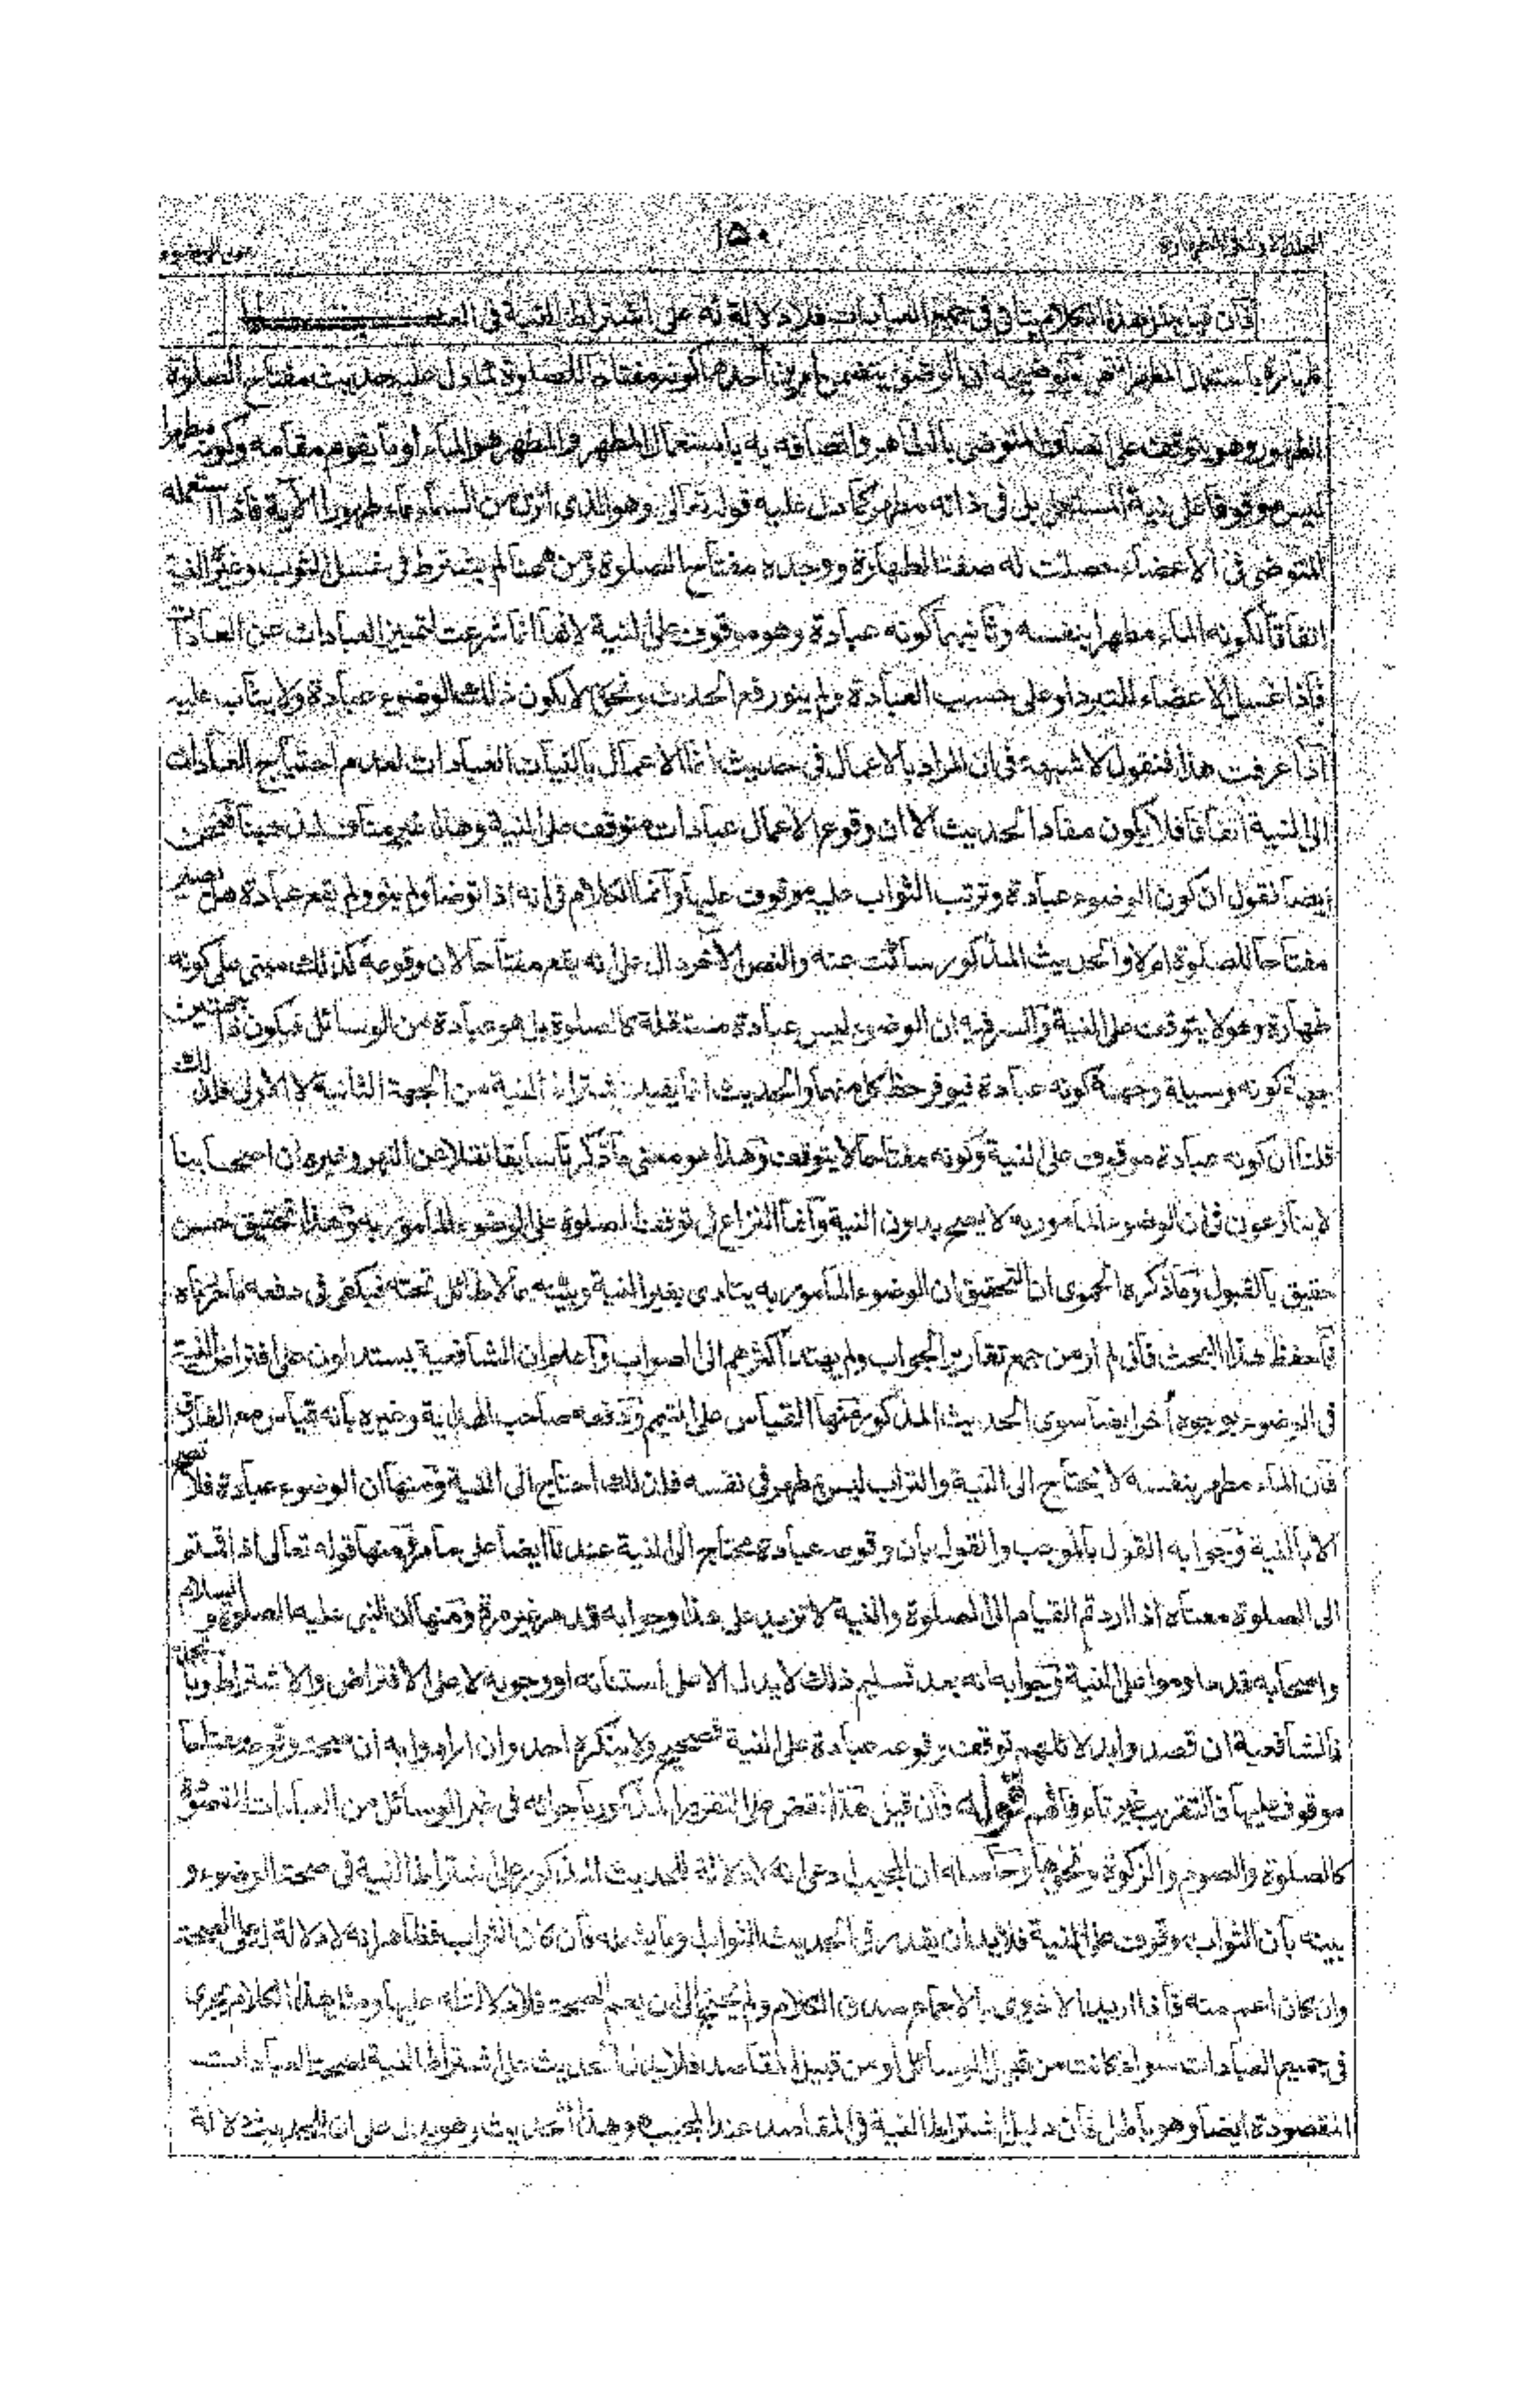 ١٥٠
فان قيل مثل هذا الكلام يتاتى في جميع العبادات فلا دلالة له على اشتراط النية في العبادات
باستعمال المطهر انتهى وتوضيحه ان الوضوء يتضمن امرين احدهما كونه مفتاحا للصلوة كما دل عليه حديث مفتاح الصلوة
الطهور وهو يتوقف على اتصاف المتوضي بالطاهر واتصافه به باستعمال المطهر والمطهر هو الماء او ما يقوم مقامه وكونه مطهرا
ليس موقوفا على نية المستعمل بل في ذاته مطهر كما دل عليه قوله تعالى وهو الذي انزل من السماء ماء طهورا الآية فاذا استعمله
المتوضي في الاعضاء حصلت له صفة الطهارة ووجد مفتاح الصلوة ومن ههنا لم يشترط في غسل الثوب وغيره النية
اتفاقا لكونه الماء مطهرا بنفسه وثانيهما كونه عبادة وهو موقوف على النية لانها انما شرعت لتمييز العبادات عن العادات
فاذا غسل الاعضاء للتبرد او على حسب العادة ولم ينو رفع الحدث ونحوه لا يكون ذلك الوضوء عبادة ولا يثاب عليه
اذا عرفت هذا فنقول لا شبهة في ان المراد بالاعمال في حديث انما الاعمال بالنيات العبادات لعدم احتياج العادات
الى النية اتفاقا فلا يكون مفاد الحديث الا ان وقوع الاعمال عبادات متوقف على النية وهذا غير مناف لمذهبنا فنحن
ايضا نقول ان كون الوضوء عبادة وترتب الثواب عليه موقوف عليها وانما الكلام في انه اذا توضأ ولم ينو ولم يقع عبادة هل يصير
مفتاحا للصلوة ام لا والحديث المذكور ساكت عنه والنص الآخر دال على انه يقع مفتاحا لان وقوعه كذلك مبني على كونه
طهارة وهو لا يتوقف على النية والسر فيه ان الوضوء ليس عبادة مستقلة كالصلوة بل هو عبادة من الوسائل فيكون ذا جهتين
جهة كونه وسيلة وجهة كونه عبادة فيوفر حظ كل منهما والحديث انما يفيد اشتراط النية من الجهة الثانية لا الاولى فلذلك
قلنا ان كونه عبادة موقوف على النية وكونه مفتاحا لا يتوقف وهذا هو معنى ما ذكرنا سابقا نقلا عن النهر وغيره ان اصحابنا
لا ينازعون في ان الوضوء المامور به لا يصح بدون النية وانما النزاع في توقف الصلوة على الوضوء المامور به وهذا تحقيق حسن
حقيق بالقبول وما ذكره الحموي ان التحقيق ان الوضوء المامور به يتادى بغير النية وبينه بما لا طائل تحته فيكفي في دفعه ما حررناه
فاحفظ هذا البحث فاني لم ار من جمع تقارير الجواب ولم يهتد اكثرهم الى الصواب واعلم ان الشافعية يستدلون على افتراض النية
في الوضوء بوجوه أخر ايضا سوى الحديث المذكور منها القياس على التيمم ودفعه صاحب الهداية وغيره بانه قياس مع الفارق
فان الماء مطهر بنفسه لا يحتاج الى النية والتراب ليس بمطهر في نفسه فلذلك احتاج الى النية ومنها ان الوضوء عبادة فلا تصح
الا بالنية وجوابه القول بالموجب والقول بان وقوعه عبادة محتاج الى النية عندنا ايضا على ما مر ومنها قوله تعالى اذا قمتم
الى الصلوة معناه اذا اردتم القيام الى الصلوة والنية لا تزيد على هذا وجوابه قد مر غير مرة ومنها ان النبي عليه الصلوة والسلام
واصحابه قد داوموا على النية وجوابه انه بعد تسليم ذلك لا يدل الا على استنانه او وجوبه لا على الافتراض والاشتراط وبالجملة
فالشافعية ان قصدوا بدلائلهم توقف وقوعه عبادة على النية فصحيح ولا ينكره احد وان ارادوا به ان صحته وقوعه مفتاحا
موقوف عليها فالتقريب غير تام فافهم قوله فان قيل هذا نقض على التقرير المذكور باجرائه في غير الوسائل من العبادات المقصودة
كالصلوة والصوم والزكوة ونحوها وحاصله ان المجيب ادعى انه لا دلالة للحديث المذكور على اشتراط النية في صحة الوضوء و
بينه بان الثواب موقوف على النية فلا بد ان يقدر في الحديث الثواب او ما يشمله فان كان الثواب فظاهر انه لا دلالة له على الصحة
وان كان اعم منه فاذا اريد الاخروي بالاجماع صدق الكلام ولم يحتج الى ان يعم الصحة فلا دلالة له عليها ومثل هذا الكلام يجري
في جميع العبادات سواء كانت من قبيل الوسائل او من قبيل المقاصد فلا يدل الحديث على اشتراط النية لصحة العبادات
المقصودة ايضا وهو باطل فان دليل اشتراط النية في المقاصد عند المجيب وهذا الحديث وهو يدل على ان للحديث دلالة